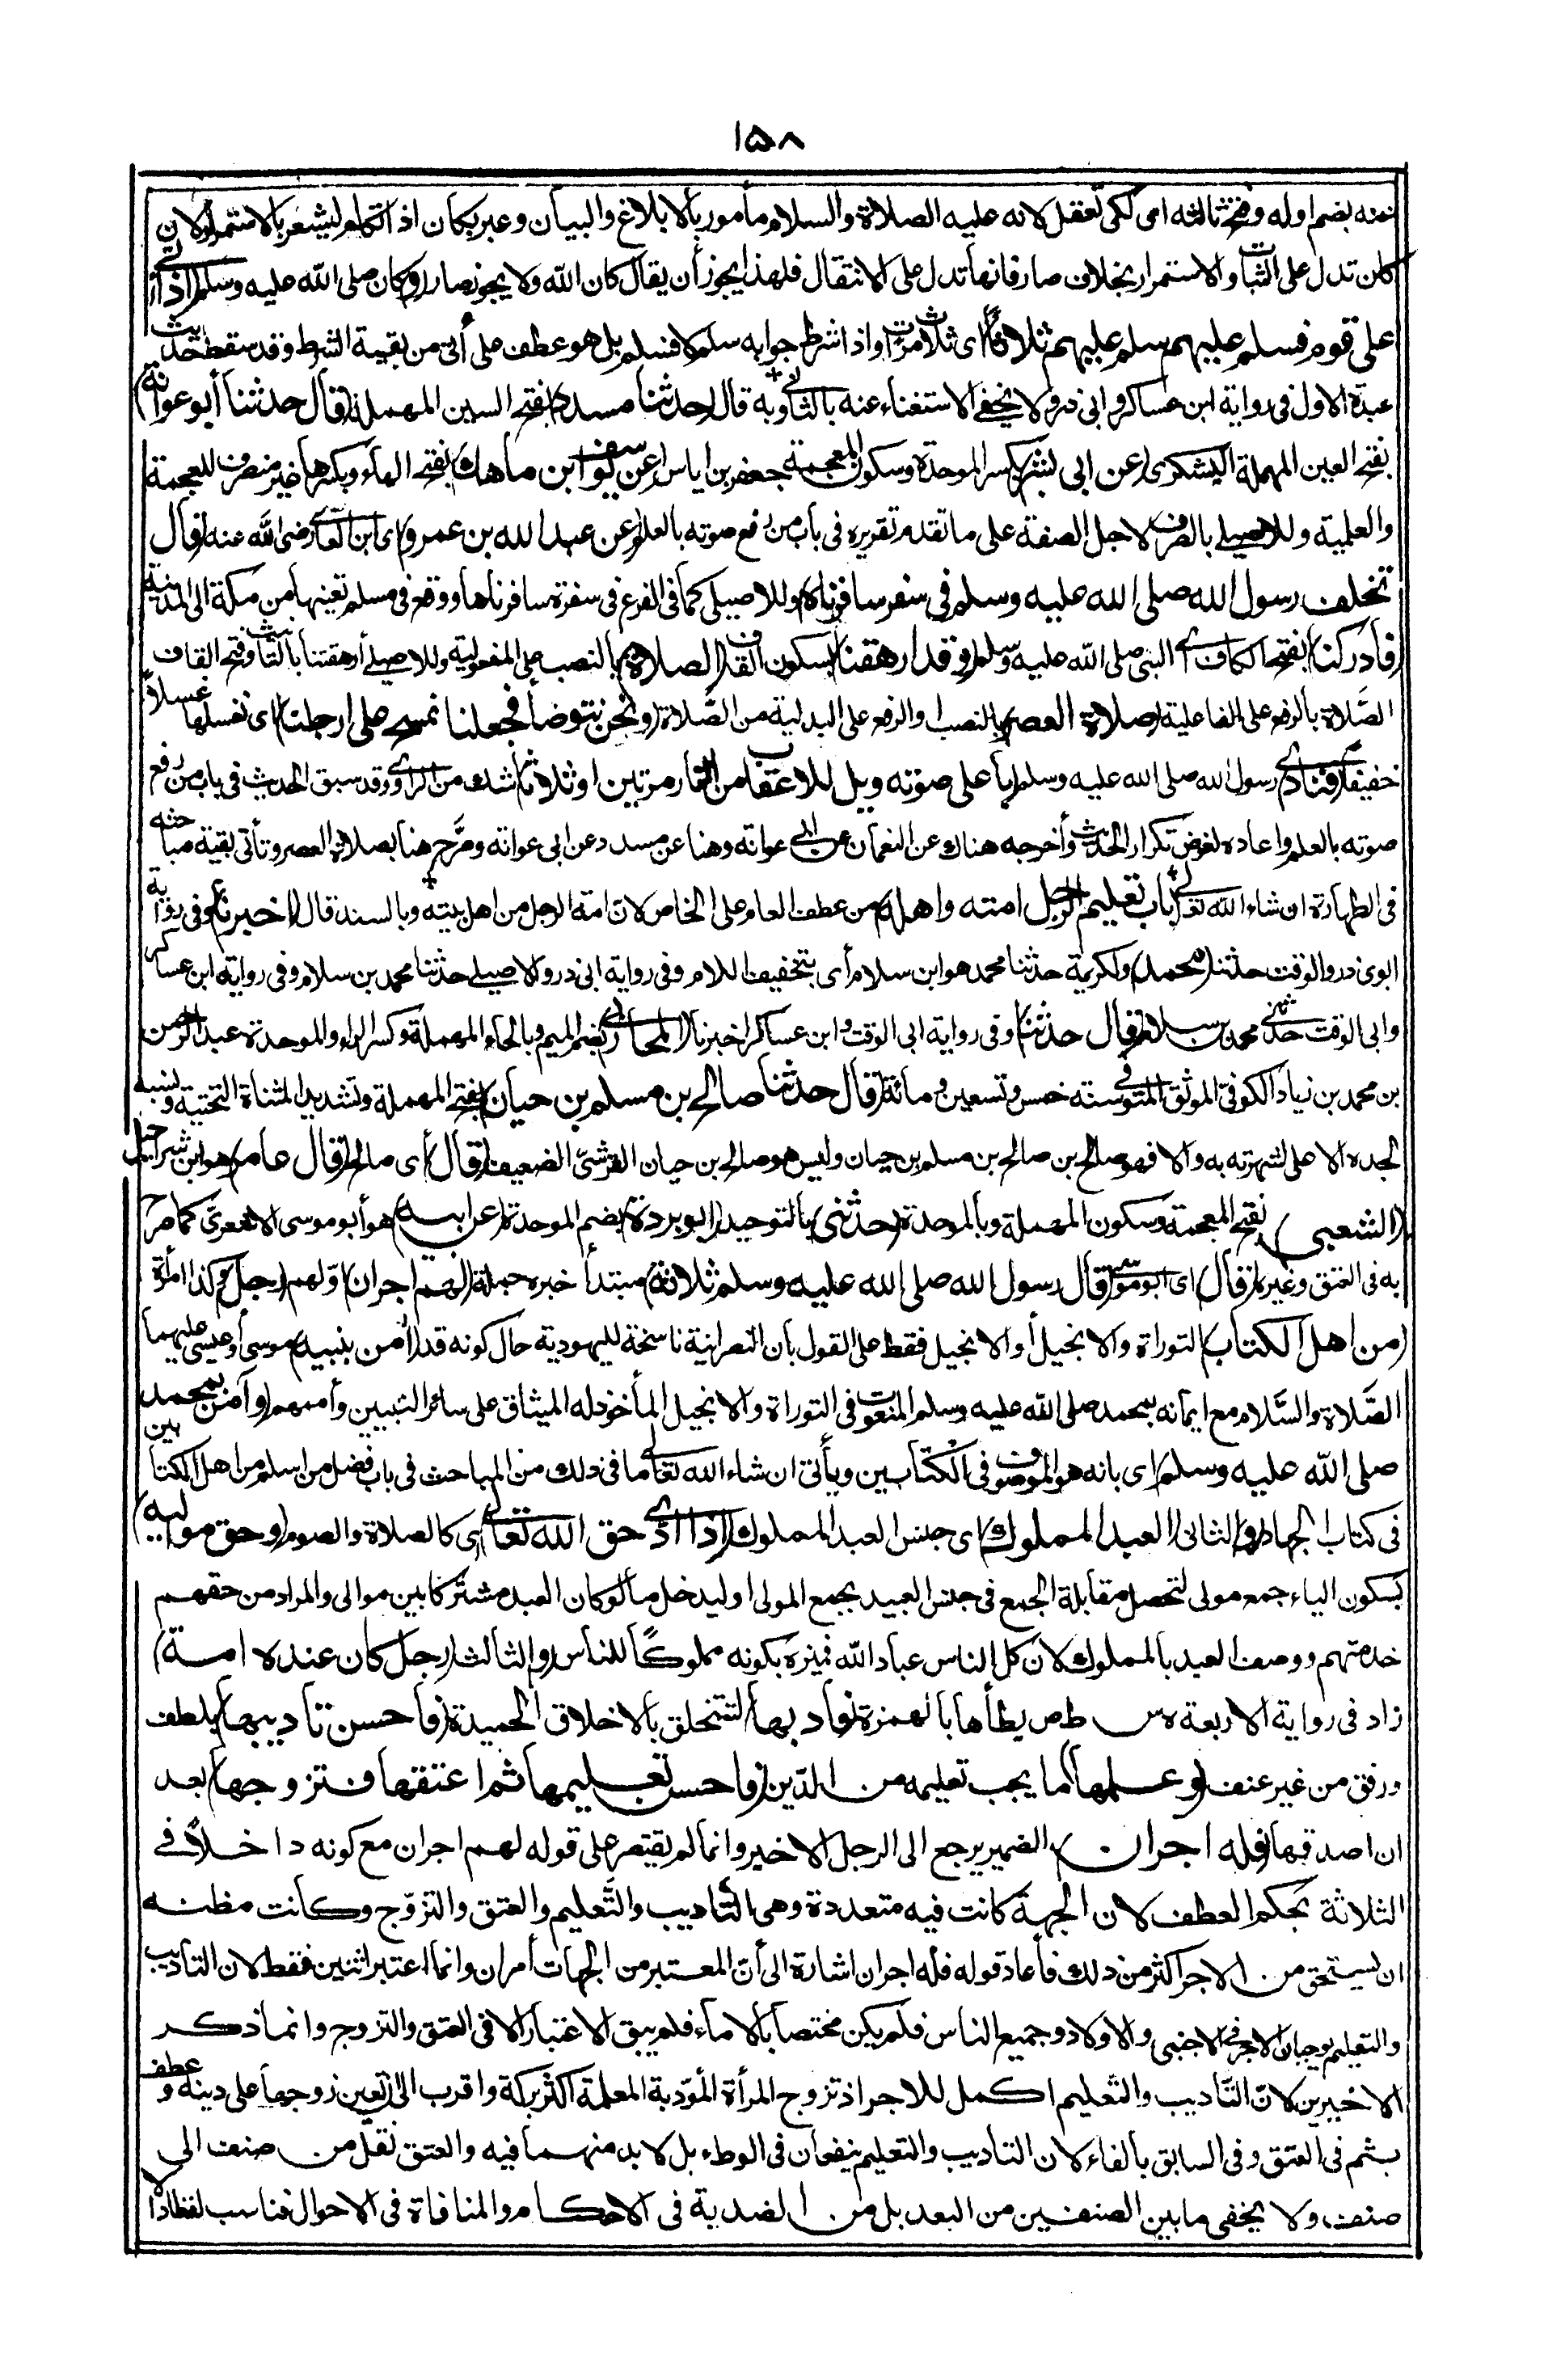 ١٥٨
عنه بضم اوله وفتح ثالثه اى لكى تعقل لانه عليه الصلاة والسلام مأمور بالابلاغ والبيان وعبر بكان اذا تكلم ليشعر بالاستمرار لان
كان تدل على الثبات والاستمرار بخلاف صار فانها تدل على الانتقال فلهذا يجوز أن يقال كان الله ولا يجوز صار (و) كان صلى الله عليه وسلم (اذا أتى
على قوم فسلم عليهم سلم عليهم ثلاثا) اى ثلاث مرات واذا شرط جوابه سلم لا فسلم بل هو عطف على أتى من بقية الشرط وقد سقط حديث
عبدة الاول فى رواية ابن عساكر وابى ذر ولا يخفى الاستغناء عنه بالثانى * وبه قال (حدثنا مسدد) بفتح السين المهملة (قال حدثنا أبو عوانة)
بفتح العين المهملة اليشكرى (عن ابى بشر) بكسر الموحدة وسكون المعجمة جعفر بن اياس (عن يوسف ابن ماهك) بفتح الهاء وبكسرها غير منصرف للعجمة
والعلمية وللاصيلى بالصرف لاجل الصفة على ما تقدم تقريره فى باب من رفع صوته بالعلم (عن عبد الله بن عمرو) اى ابن العاص رضى الله عنه (قال
تخلف رسول الله صلى الله عليه وسلم فى سفر سافرناه) وللاصيلى كما فى الفرع فى سفرة سافرناها ووقع فى مسلم تعيينها من مكة الى المدينة
(فادركنا) بفتح الكاف اى النبى صلى الله عليه وسلم (وقد ارهقنا) بسكون القاف (الصلاة) بالنصب على المفعولية وللاصيلى أرهقتنا بالتأنيث وفتح القاف
الصلاة بالرفع على الفاعلية (صلاة العصر) بالنصب او الرفع على البدلية من الصلاة (ونحن نتوضأ فجعلنا نمسح على ارجلنا) اى نغسلها غسلا
خفيفا (فنادى) رسول الله صلى الله عليه وسلم (بأعلى صوته ويل للاعقاب من النار مرتين او ثلاثا) شك من الراوى وقد سبق الحديث فى باب من رفع
صوته بالعلم واعاده لغرض تكرار الحديث وأخرجه هناك عن النعمان عن ابى عوانة وهنا عن مسدد عن ابى عوانة وصرح هنا بصلاة العصر وتأتى بقية مباحثه
فى الطهارة ان شاء الله تعالى * (باب تعليم الرجل امته واهله) من عطف العام على الخاص لان امة الرجل من اهل بيته * وبالسند قال (اخبرنا) وفى رواية
ابوى ذر والوقت حدثنا (محمد) ولكريمة حدثنا محمد هو ابن سلام أى بتخفيف اللام وفى رواية ابى ذر والاصيلى حدثنا محمد بن سلام وفى رواية ابن عساكر
وابى الوقت حدثنى محمد بن سلام (قال حدثنا) وفى رواية ابى الوقت وابن عساكر اخبرنا (المحاربى) بضم الميم وبالحاء المهملة وكسر الراء والموحدة عبد الرحمن
بن محمد بن زياد الكوفى الموثق المتوفى سنة خمس وتسعين ومائة (قال حدثنا صالح بن مسلم بن حيان) بفتح المهملة وتشديد المثناة التحتية ونسبه
لجده الاعلى لشهرته به والا فهو صالح بن صالح بن مسلم بن حيان وليس هو صالح بن حيان القرشى الضعيف (قال) أى صالح (قال عامر) هو ابن شراحيل
(الشعبى) بفتح المعجمة وسكون المهملة وبالموحدة (حدثنى) بالتوحيد (ابو بردة) بضم الموحدة (عن ابيه) هو أبو موسى الاشعرى كما صرح
به فى العتق وغيره (قال) اى ابو موسى (قال رسول الله صلى الله عليه وسلم ثلاثة) مبتدأ خبره جملة (لهم اجران) اولهم (رجل) وكذا امرأة
(من اهل الكتاب) التوراة والانجيل أو الانجيل فقط على القول بأن النصرانية ناسخة لليهودية حال كونه قد (آمن بنبيه) موسى أو عيسى عليهما
الصلاة والسلام مع ايمانه بمحمد صلى الله عليه وسلم المنعوت فى التوراة والانجيل المأخوذ له الميثاق على سائر النبيين وأممهم (وآمن بمحمد
صلى الله عليه وسلم) اى بانه هو الموصوف فى الكتابين ويأتى ان شاء الله تعالى ما فى ذلك من المباحث فى باب فضل من اسلم من اهل الكتابين
فى كتاب الجهاد (و) الثانى (العبد المملوك) اى جنس العبد المملوك (اذا ادى حق الله تعالى) اى كالصلاة والصوم (وحق مواليه)
بسكون الياء جمع مولى لتحصل مقابلة الجمع فى جنس العبيد بجمع المولى او ليدخل ما لو كان العبد مشتركا بين موالى والمراد من حقهم
خدمتهم ووصف العبد بالمملوك لان كل الناس عباد الله فميزه بكونه مملوكا للناس (و) الثالث (رجل كان عنده امة)
زاد فى رواية الاربعة ه س ط ص يطأها بالهمزة (فأدبها) لتتخلق بالاخلاق الحميدة (فأحسن تأديبها) بلطف
ورفق من غير عنف (وعلمها) ما يجب تعليمه من الدين (فاحسن تعليمها ثم اعتقها فتزوجها) بعد
ان اصدقها (فله اجران) الضمير يرجع الى الرجل الاخير وانما لم يقتصر على قوله لهم اجران مع كونه داخلا فى
الثلاثة بحكم العطف لان الجهة كانت فيه متعددة وهى التأديب والتعليم والعتق والتزوج وكانت مظنه
ان يستحق من الاجر اكثر من ذلك فأعاد قوله فله اجران اشارة الى أن المعتبر من الجهات أمران وانما اعتبر اثنين فقط لان التأديب
والتعليم يوجبان الاجر فى الاجنبى والاولاد وجميع الناس فلم يكن مختصا بالاماء فلم يبق الاعتبار الا فى العتق والتزوج وانما ذكر
الاخيرين لان التأديب والتعليم اكمل للاجر اذ تزوج المرأة المؤدبة المعلمة اكثر بركة واقرب الى ان تعين زوجها على دينه وعطف
بثم فى العتق وفى السابق بالفاء لان التأديب والتعليم ينفعان فى الوطء بل لا بد منهما فيه والعتق نقل من صنف الى
صنف ولا يخفى ما بين الصنفين من البعد بل من الضدية فى الاحكام والمنافاة فى الاحوال فناسب لفظا دالا